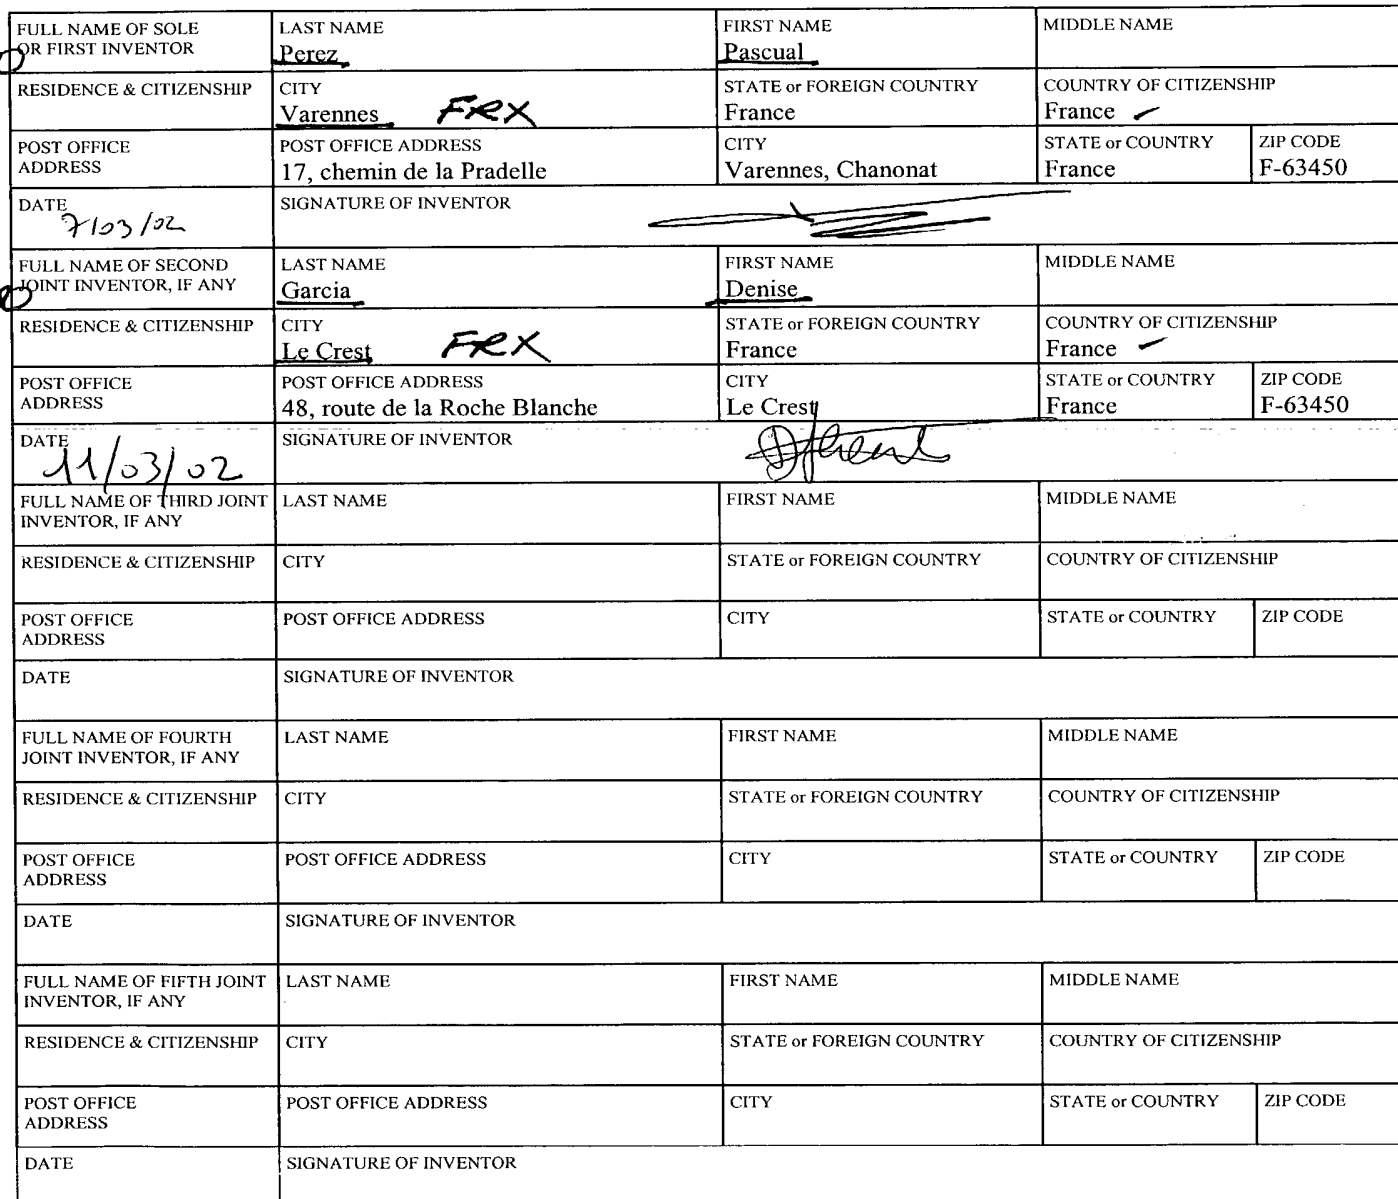 FULL NAME OF SOLE OR FIRST INVENTOR LAST NAME FIRST NAME MIDDLE NAME
Perez Pascual
RESIDENCE & CITIZENSHIP CITY STATE or FOREIGN COUNTRY COUNTRY OF CITIZENSHIP
Varennes FRX France France
POST OFFICE ADDRESS POST OFFICE ADDRESS CITY STATE or COUNTRY ZIP CODE
17, chemin de la Pradelle Varennes, Chanonat France F-63450
DATE SIGNATURE OF INVENTOR
7/03/02
FULL NAME OF SECOND JOINT INVENTOR, IF ANY LAST NAME FIRST NAME MIDDLE NAME
Garcia Denise
RESIDENCE & CITIZENSHIP CITY STATE or FOREIGN COUNTRY COUNTRY OF CITIZENSHIP
Le Crest FRX France France
POST OFFICE ADDRESS POST OFFICE ADDRESS CITY STATE or COUNTRY ZIP CODE
48, route de la Roche Blanche Le Crest France F-63450
DATE SIGNATURE OF INVENTOR
11/03/02
FULL NAME OF THIRD JOINT INVENTOR, IF ANY LAST NAME FIRST NAME MIDDLE NAME
RESIDENCE & CITIZENSHIP CITY STATE or FOREIGN COUNTRY COUNTRY OF CITIZENSHIP
POST OFFICE ADDRESS POST OFFICE ADDRESS CITY STATE or COUNTRY ZIP CODE
DATE SIGNATURE OF INVENTOR
FULL NAME OF FOURTH JOINT INVENTOR, IF ANY LAST NAME FIRST NAME MIDDLE NAME
RESIDENCE & CITIZENSHIP CITY STATE or FOREIGN COUNTRY COUNTRY OF CITIZENSHIP
POST OFFICE ADDRESS POST OFFICE ADDRESS CITY STATE or COUNTRY ZIP CODE
DATE SIGNATURE OF INVENTOR
FULL NAME OF FIFTH JOINT INVENTOR, IF ANY LAST NAME FIRST NAME MIDDLE NAME
RESIDENCE & CITIZENSHIP CITY STATE or FOREIGN COUNTRY COUNTRY OF CITIZENSHIP
POST OFFICE ADDRESS POST OFFICE ADDRESS CITY STATE or COUNTRY ZIP CODE
DATE SIGNATURE OF INVENTOR